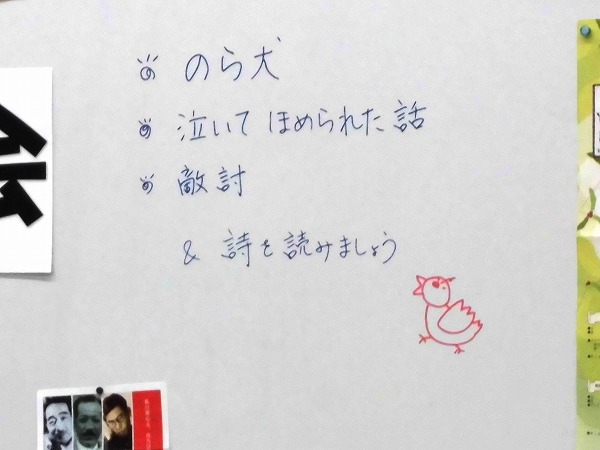 のら犬
泣いてほめられた話
敵討
& 詩を読みましょう